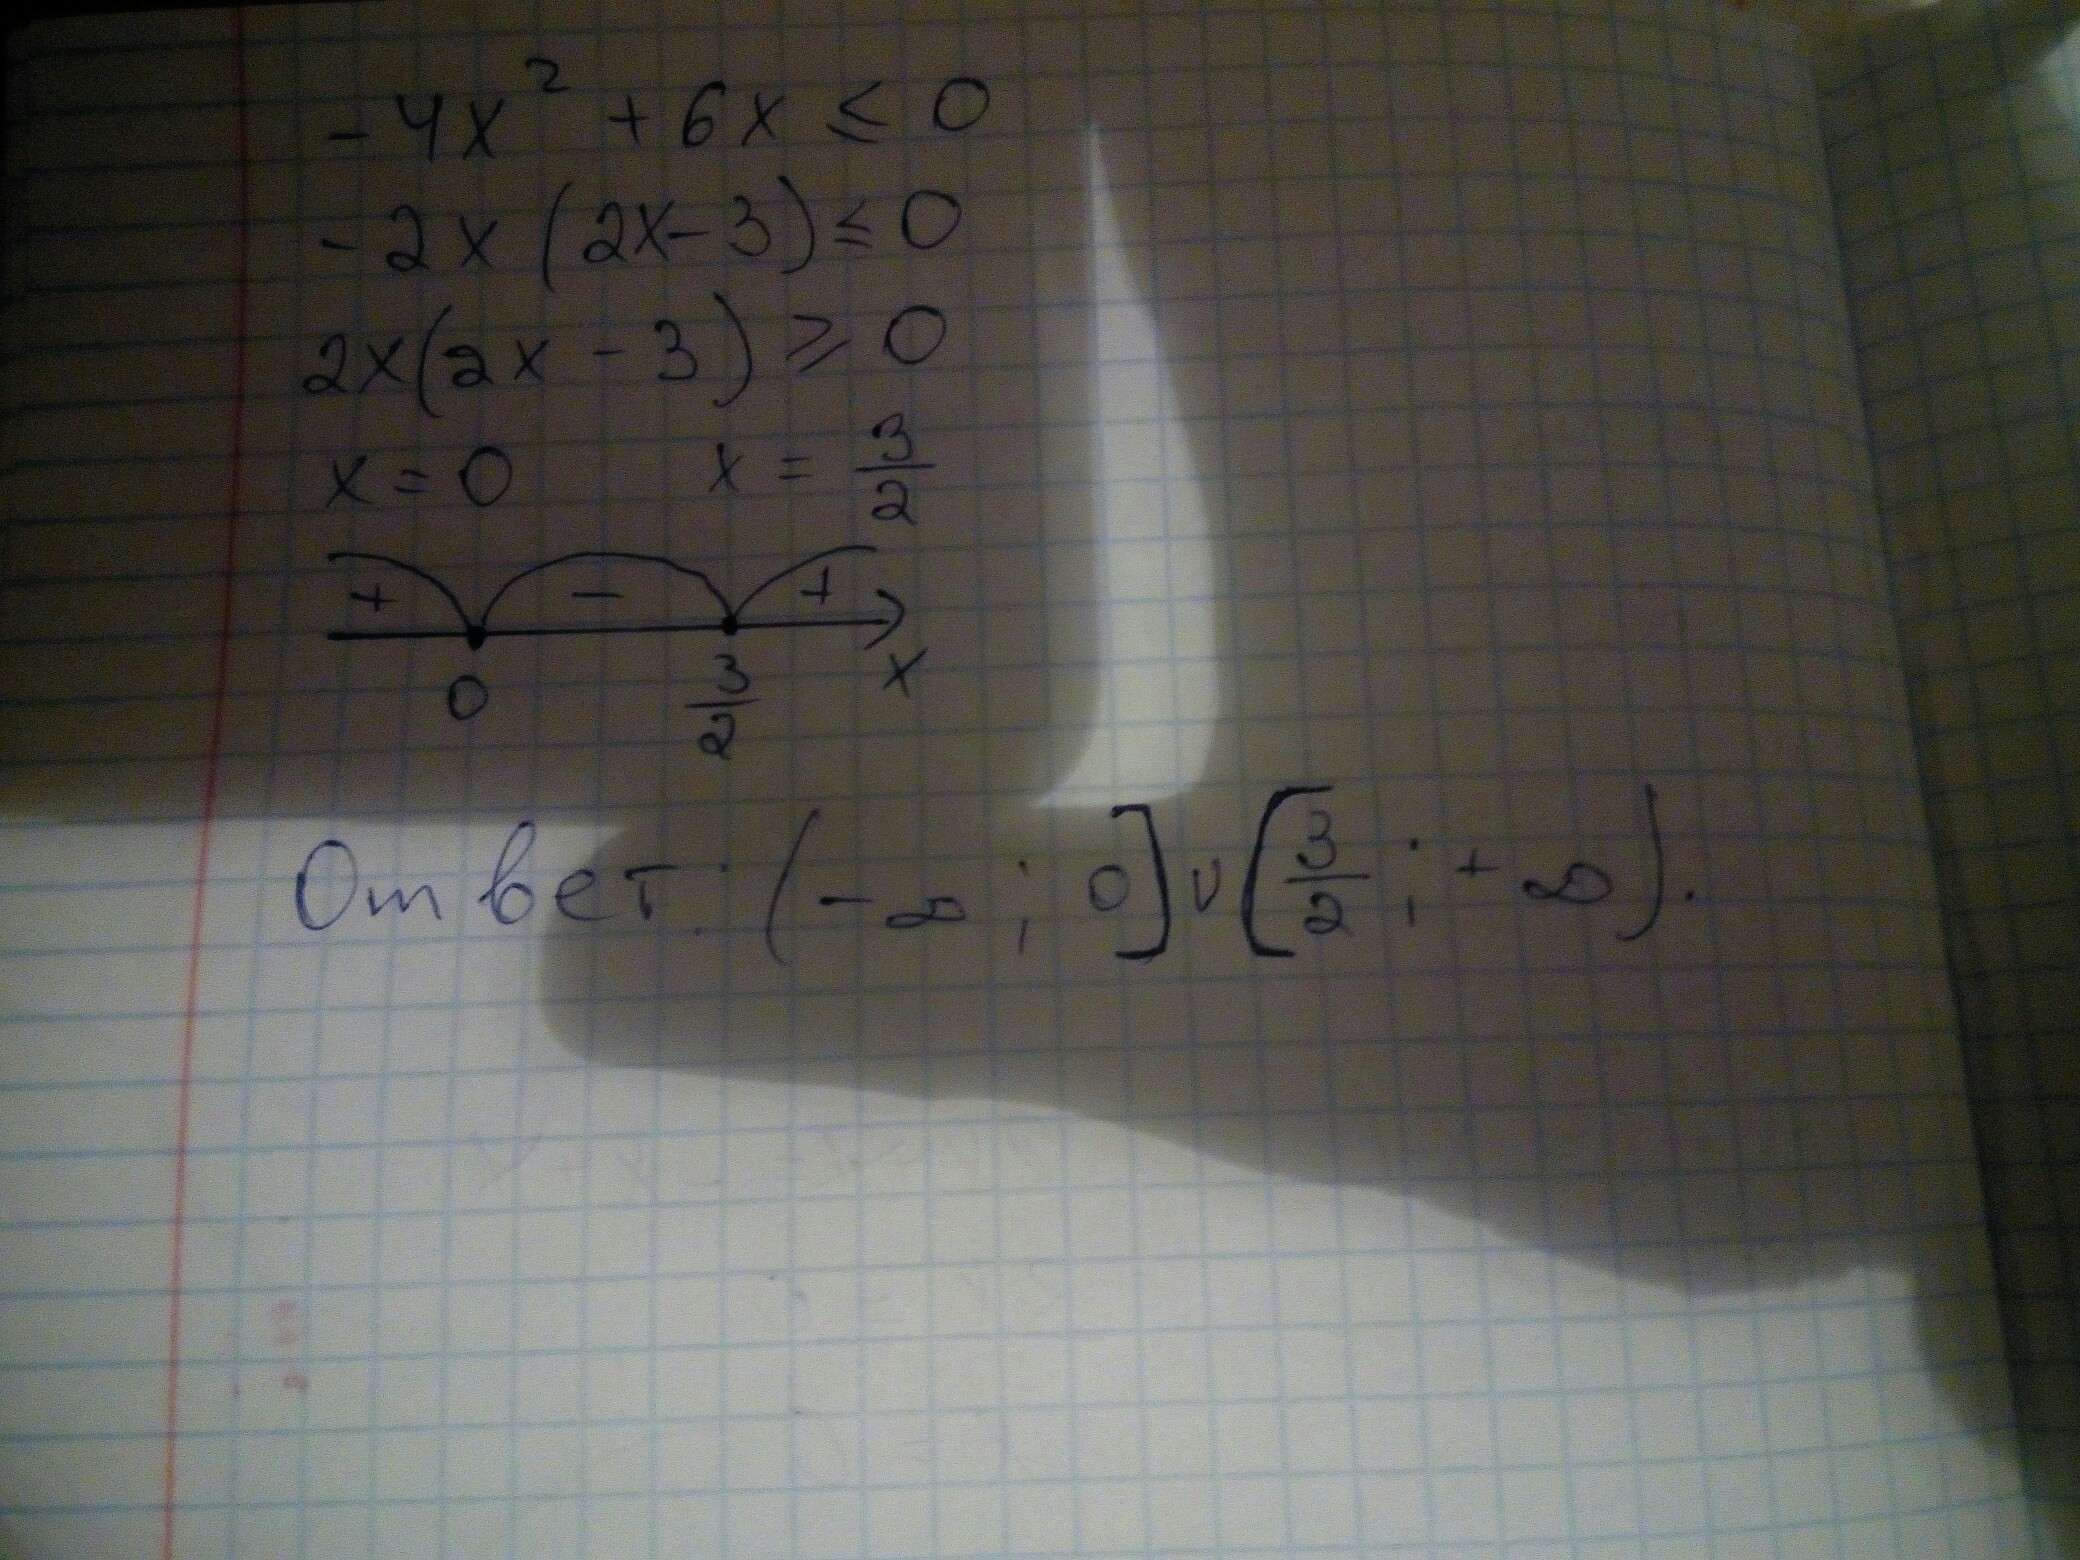 -4x² + 6x ≤ 0
-2x (2x-3) ≤ 0
2x(2x - 3) ≥ 0
x = 0 x = 3/2
+ - +
0 3/2 x
Ответ: (-∞ ; 0] ∪ [3/2 ; +∞).